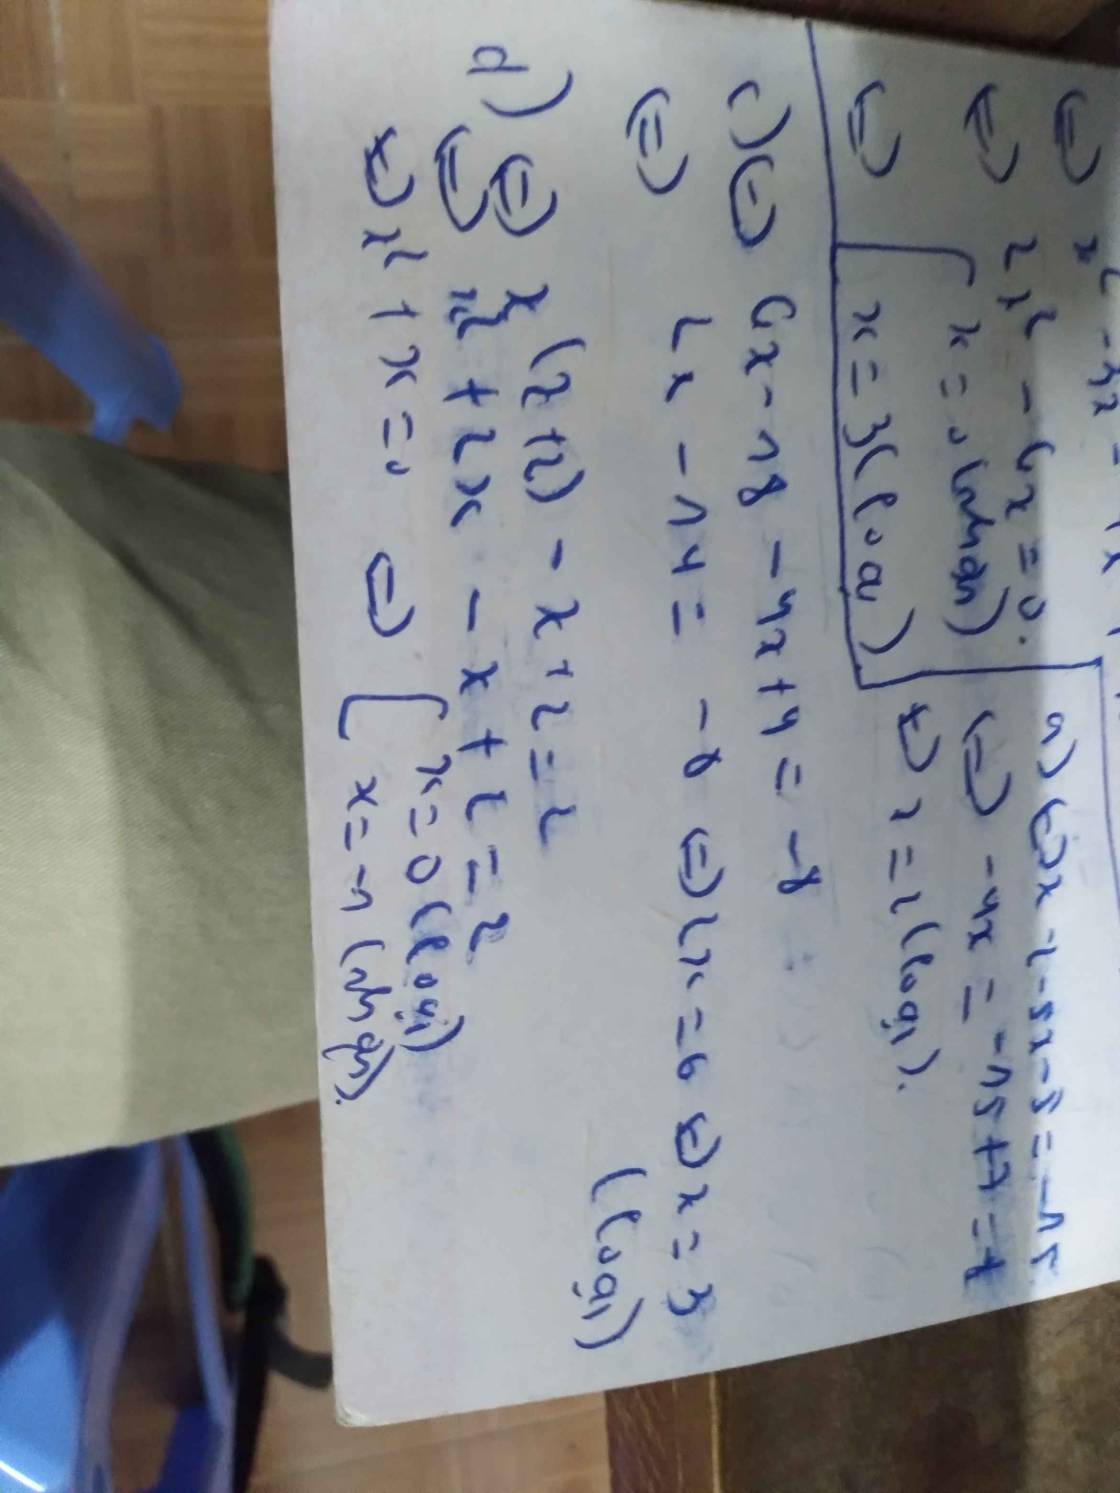 ⇔ x² - 4x -
⇔ 2x² - 6x = 0.
⇔ [ x = 0 (nhận)
x = 3 (loại)
a) ⇔ x - 2 - 5x - 5 = -15
⇔ -4x = -15 + 7 = -8
⇔ x = 2 (loại).
c) ⇔ 6x - 18 - 4x + 4 = -8
⇔ 2x - 14 = -8 ⇔ 2x = 6 ⇔ x = 3
(loại)
d) ⇔ x(x+2) - x + 2 = 2
⇔ x² + 2x - x + 2 = 2
⇔ x² + x = 0 ⇔ [ x = 0 (loại)
x = -1 (nhận).